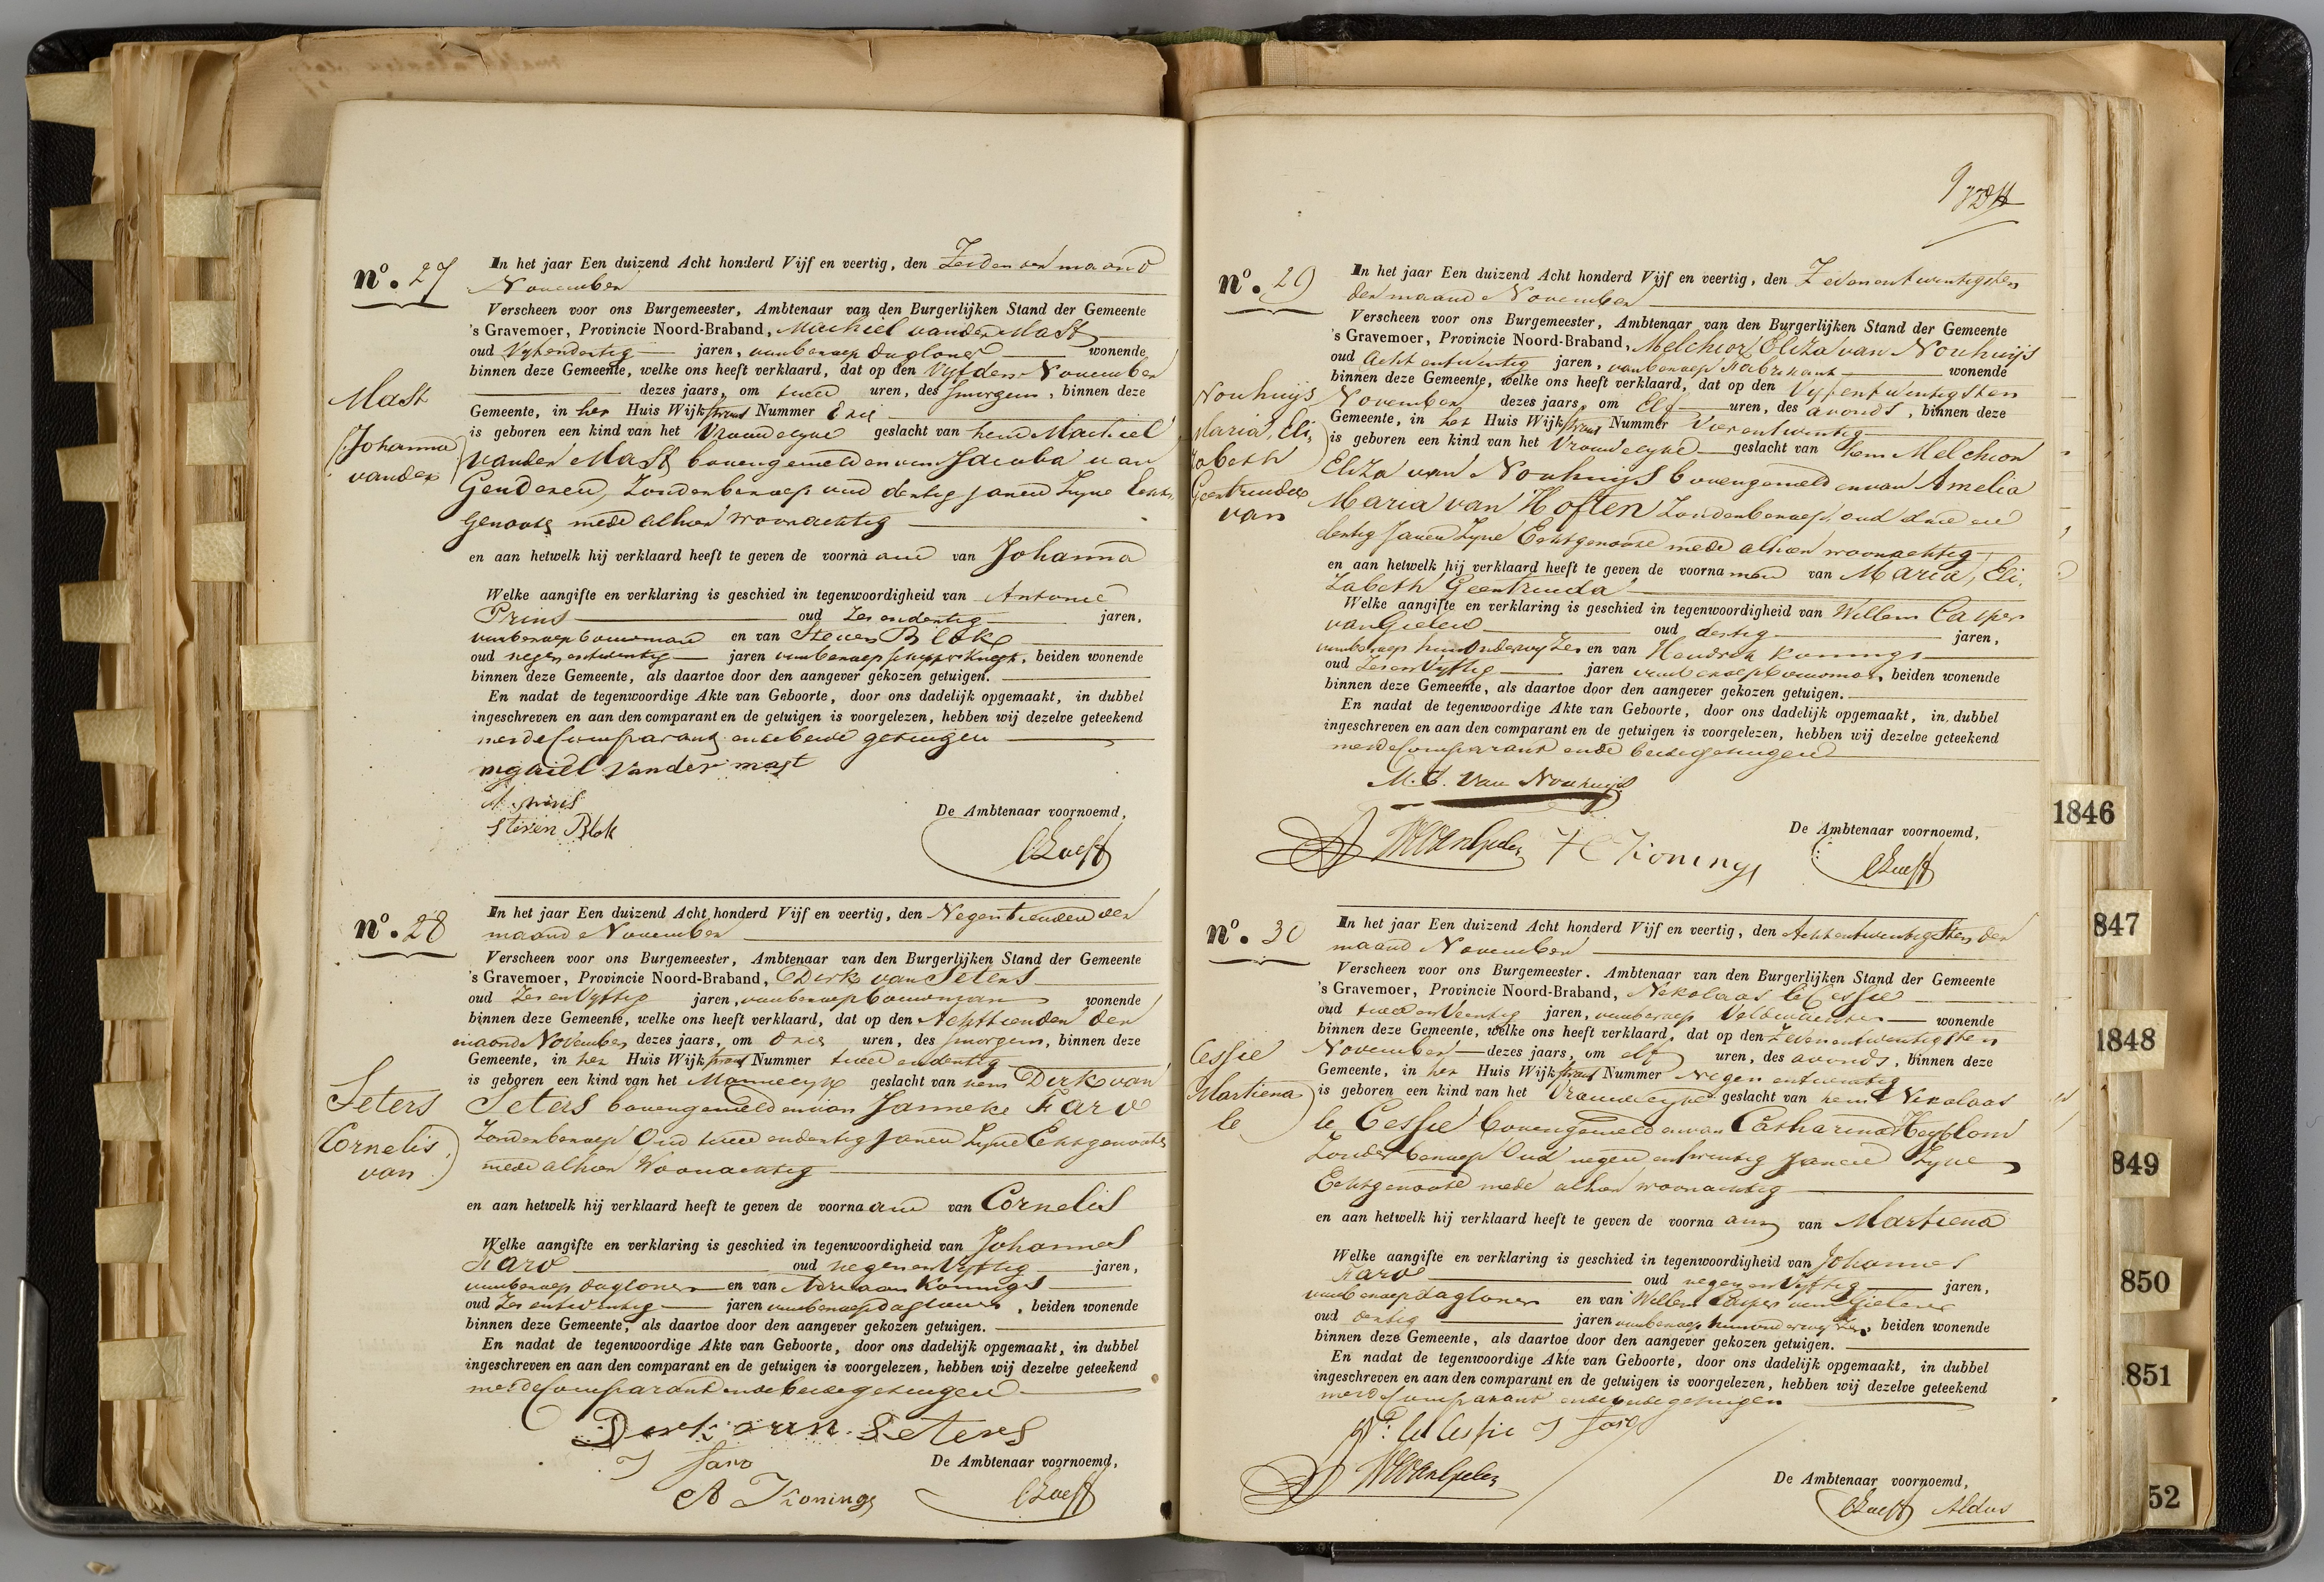 nº. 27
In het jaar Een duizend Acht honderd Vijf en veertig, den Zesden der maand
November
Verscheen voor ons Burgemeester, Ambtenaar van den Burgerlijken Stand der Gemeente
's Gravemoer, Provincie Noord-Braband, Machiel van der Mast
oud Vyfendertig jaren, van beroep dagloner wonende
binnen deze Gemeente, welke ons heeft verklaard, dat op den Vyfden November
dezes jaars, om twee uren, des smorgens, binnen deze
Gemeente, in het Huis Wijk straat Nummer Drie
is geboren een kind van het Vrouwelyke geslacht van hem Machiel
van der Mast bovengemeld en van Jacoba van
Genderen, Zonder beroep oud dertig jaren Zyne Echt-
Genoote mede alhier woonachtig
Mast
(Johanna
van der)
en aan hetwelk hij verklaard heeft te geven de voorna am van Johanna
Welke aangifte en verklaring is geschied in tegenwoordigheid van Antonie
Prins oud Zes endertig jaren,
van beroep bouwman en van Steven Blok
oud negenentwintig jaren van beroep schippersknegt, beiden wonende
binnen deze Gemeente, als daartoe door den aangever gekozen getuigen.
En nadat de tegenwoordige Akte van Geboorte, door ons dadelijk opgemaakt, in dubbel
ingeschreven en aan den comparant en de getuigen is voorgelezen, hebben wij dezelve geteekend
met de Comparant en de beide getuigen
van der mast
Prins
Steven Blok
De Ambtenaar voornoemd,
nº. 28
In het jaar Een duizend Acht honderd Vijf en veertig, den Negentienden der
maand November
Verscheen voor ons Burgemeester, Ambtenaar van den Burgerlijken Stand der Gemeente
's Gravemoer, Provincie Noord-Braband, Dirk van Seters
oud Zes en Vyftig jaren, van beroep bouwman wonende
binnen deze Gemeente, welke ons heeft verklaard, dat op den Achttienden der
maand November dezes jaars, om Drie uren, des smorgens, binnen deze
Gemeente, in het Huis Wijk straat Nummer twee endertig
is geboren een kind van het Mannelyk geslacht van hem Dirk van
Seters bovengemeld en van Janneke Faro
Zonder beroep Oud twee endertig Jaren Zyne Echtgenoote
mede alhier Woonachtig
Seters
(Cornelis
van)
en aan hetwelk hij verklaard heeft te geven de voorna am van Cornelis
Welke aangifte en verklaring is geschied in tegenwoordigheid van Johannes
Faro oud negen en Vyftig jaren,
van beroep dagloner en van Adriaan Konings
oud Zes entwintig jaren van beroep dagloner, beiden wonende
binnen deze Gemeente, als daartoe door den aangever gekozen getuigen.
En nadat de tegenwoordige Akte van Geboorte, door ons dadelijk opgemaakt, in dubbel
ingeschreven en aan den comparant en de getuigen is voorgelezen, hebben wij dezelve geteekend
met de Comparant en de beide getuigen
Dirk van Seters
J faro
A Konings
De Ambtenaar voornoemd,
nº. 29
In het jaar Een duizend Acht honderd Vijf en veertig, den Zevenentwintigsten
der maand November
Verscheen voor ons Burgemeester, Ambtenaar van den Burgerlijken Stand der Gemeente
's Gravemoer, Provincie Noord-Braband, Melchior Eliza van Nouhuijs
oud Acht entwintig jaren, van beroep Fabrikant wonende
binnen deze Gemeente, welke ons heeft verklaard, dat op den Vyfentwintigsten
November dezes jaars, om Elf uren, des avonds, binnen deze
Gemeente, in het Huis Wijk straat Nummer Vierentwintig
is geboren een kind van het Vrouwelyke geslacht van hem Melchior
Eliza van Nouhuijs bovengemeld en van Amelia
Maria van Hoften Zonder beroep, oud drie en
dertig Jaren Zyne Echtgenoote mede alhier woonachtig
Nouhuijs
Maria, Eli,
zabeth
Geertruida
van
en aan hetwelk hij verklaard heeft te geven de voorna men van Maria, Eli,
zabeth Geertruida
Welke aangifte en verklaring is geschied in tegenwoordigheid van Willem Casper
van Gielen oud dertig jaren,
van beroep hulponderwyzer en van Hendrik Konings
oud Zes en Vyftig jaren van beroep bouwman, beiden wonende
binnen deze Gemeente, als daartoe door den aangever gekozen getuigen.
En nadat de tegenwoordige Akte van Geboorte, door ons dadelijk opgemaakt, in dubbel
ingeschreven en aan den comparant en de getuigen is voorgelezen, hebben wij dezelve geteekend
met de Comparant en de beide getuigen
M. E. van Nouhuijs
H Konings
De Ambtenaar voornoemd,
nº. 30
In het jaar Een duizend Acht honderd Vijf en veertig, den Achtentwintigsten der
maand November
Verscheen voor ons Burgemeester. Ambtenaar van den Burgerlijken Stand der Gemeente
's Gravemoer, Provincie Noord-Braband, Nikolaas le Cessie
oud twee en Veertig jaren, van beroep Veldwachter wonende
binnen deze Gemeente, welke ons heeft verklaard, dat op den Zevenentwintigsten
November dezes jaars, om elf uren, des avonds, binnen deze
Gemeente, in het Huis Wijk straat Nummer Negen entwintig
is geboren een kind van het Vrouwelyke geslacht van hem Nikolaas
le Cessie bovengemeld en van Catharina Heyblom
Zonder beroep Oud negen entwintig Jaren Zyne
Echtgenoote mede alhier woonachtig
Cessie
Martiena
le
en aan hetwelk hij verklaard heeft te geven de voorna am van Martiena
Welke aangifte en verklaring is geschied in tegenwoordigheid van Johannes
Faro oud negen en Vyftig jaren,
van beroep dagloner en van Willem Casper van Gielen
oud dertig jaren van beroep hulponderwyzer, beiden wonende
binnen deze Gemeente, als daartoe door den aangever gekozen getuigen.
En nadat de tegenwoordige Akte van Geboorte, door ons dadelijk opgemaakt, in dubbel
ingeschreven en aan den comparant en de getuigen is voorgelezen, hebben wij dezelve geteekend
met de Comparant en de beide getuigen
le Cessie J faro
De Ambtenaar voornoemd,
Aldus
1846
847
1848
849
850
851
52